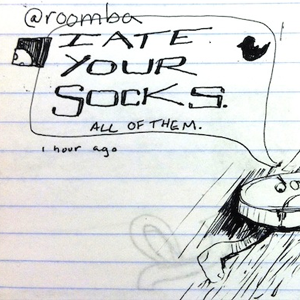 @roomba
I ATE
YOUR
SOCKS.
ALL OF THEM.
1 hour ago